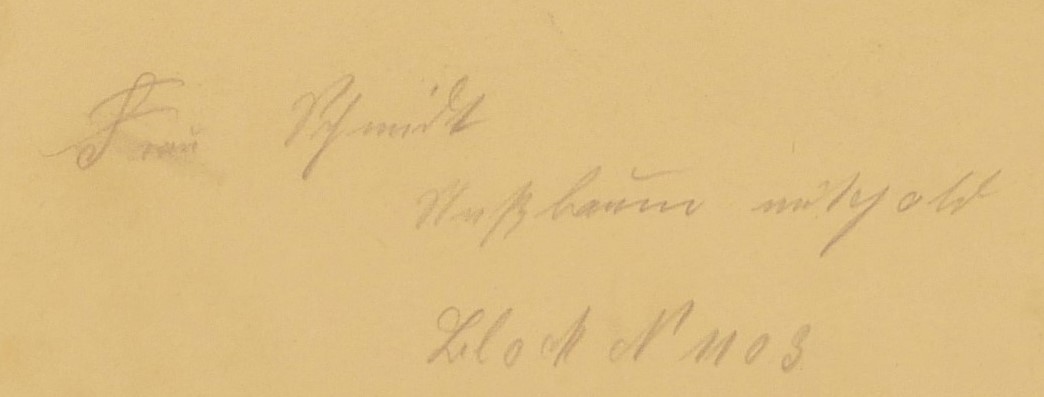 Frau Schmidt
Nußbaum mit Gold
Block N 1103